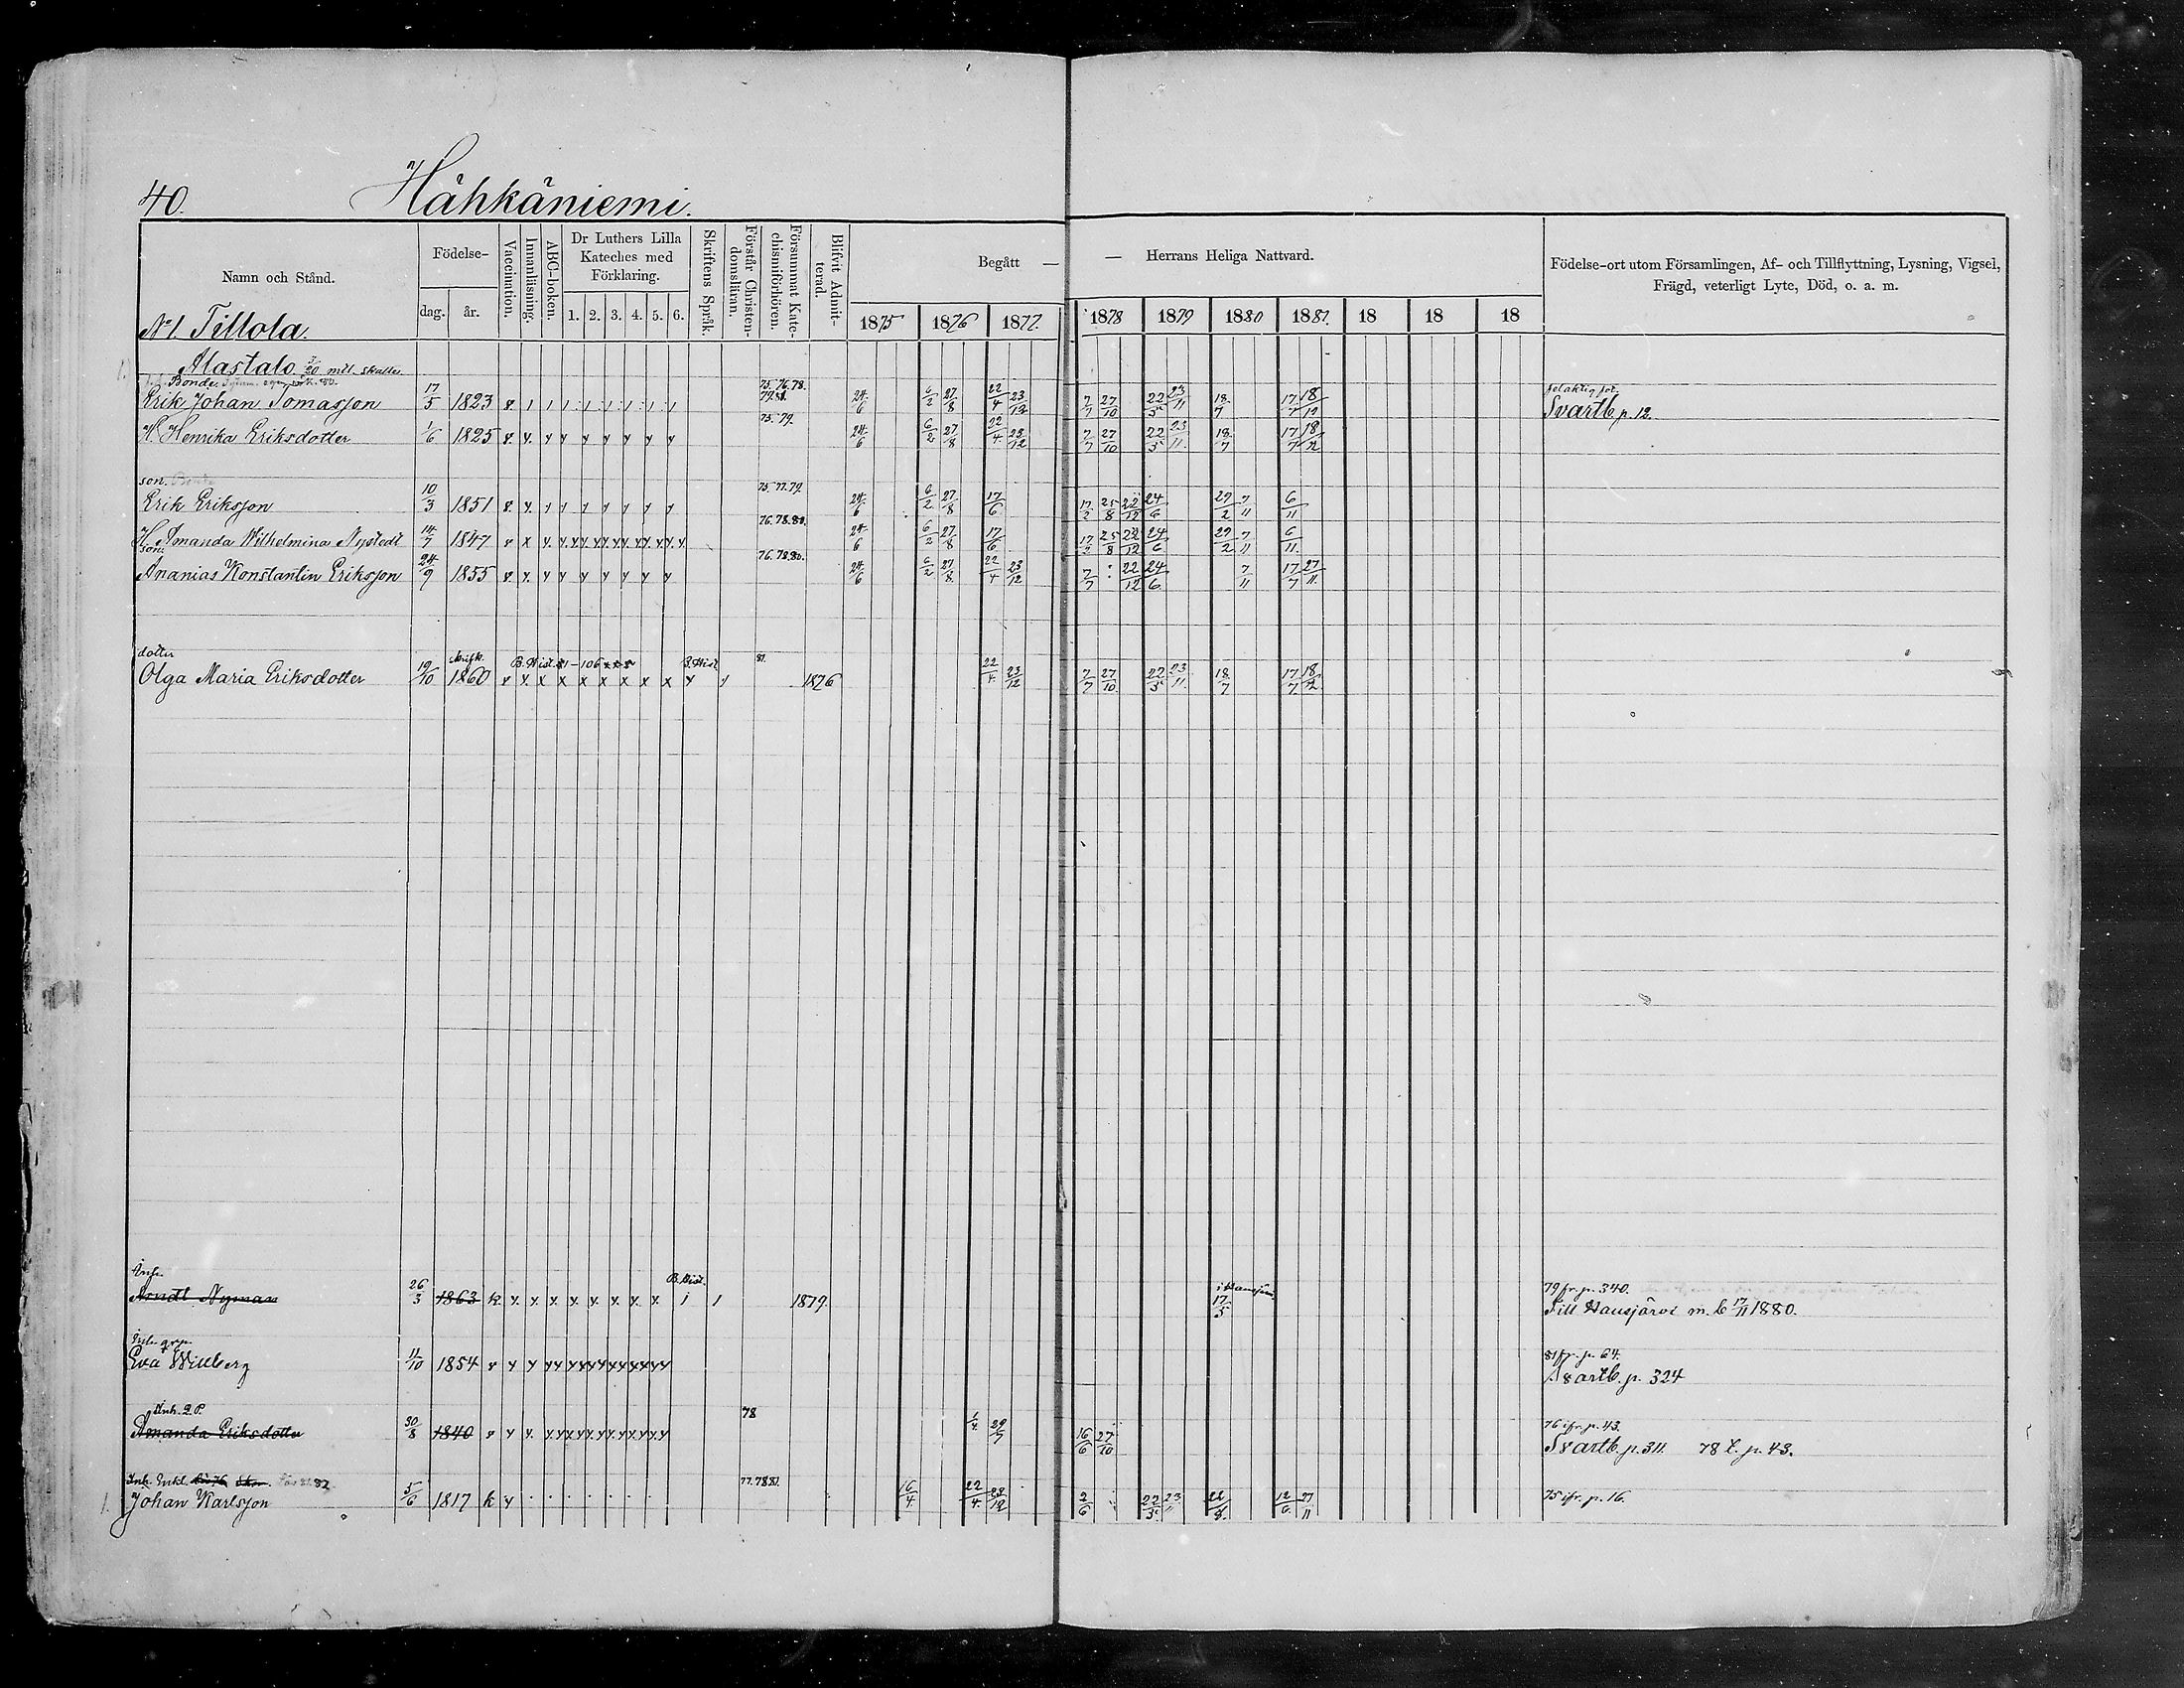 40. Hähkäniemi.
Namn och Stånd. Födelse- dag. år. Vaccination. Innanläsning. ABC-boken. Dr Luthers Lilla Kateches med Förklaring. 1. 2. 3. 4. 5. 6. Skriftens Språk. Förstår Christen-domsläran. Försummat Kate-chismiförhören. Blifvit Admit-terad. Begått — — Herrans Heliga Nattvard. Födelse-ort utom Församlingen, Af- och Tillflyttning, Lysning, Vigsel, Frägd, veterligt Lyte, Död, o. a. m.
1875 1876 1877. 1878 1879 1880 1881. 18 18 18
N:o 1. Tillola.
Alastalo 7/20 mtl. skatte
Bonde 75. 76. 78. 79.
Erik Johan Tomasson 17/5 1823 24/6 6/2 27/8 22/4 23/12 7/7 27/10 22/5 23/11 18/7 17/7 18/12 Svartb. p. 12.
75. 79.
H. Henrika Eriksdotter 1/6 1825 24/6 6/2 27/8 22/4 23/12 7/7 27/10 22/5 23/11 18/7 17/7 18/12
son. 75. 77. 79.
Erik Eriksson 10/3 1851 24/6 6/2 27/8 17/6 17/2 25/8 22/12 24/6 29/2 7/11 6/11
76. 78. 80.
H. Amanda Wilhelmina Nystedt 14/7 1847 24/6 6/2 27/8 17/6 17/2 25/8 22/12 24/6 29/2 7/11 6/11
son. 76. 78. 80.
Ananias Konstantin Eriksson 24/9 1855 24/6 6/2 27/8 22/4 23/12 7/7 22/12 24/6 7/11 17/7 27/11
dotter B. Hist. B. Hist 81.
Olga Maria Eriksdotter 19/10 1860 1876 22/4 23/12 7/7 27/10 22/5 23/11 18/7 17/7 18/12
Inh. B. Hist. 79 fr. p. 340.
Arndt Nyman 26/3 1863 k 1879. 17/5 Till Hausjärvi m. b 17/11 1880.
81 fr. p. 64.
Eva Willberg 11/10 1854 Svartb. p. 324
Inh. Q. P. 78 76 ifr. p. 43.
Amanda Eriksdotter 30/8 1840 1/4 29/7 16/6 27/10 Svartb. p. 311. 78 t. p. 43.
Inh. Enkl. 77. 78 81.
Johan Karlsson 5/6 1817 k 16/4 22/4 23/12 2/6 22/5 23/11 22/8 12/6 27/11 75 ifr. p. 16.